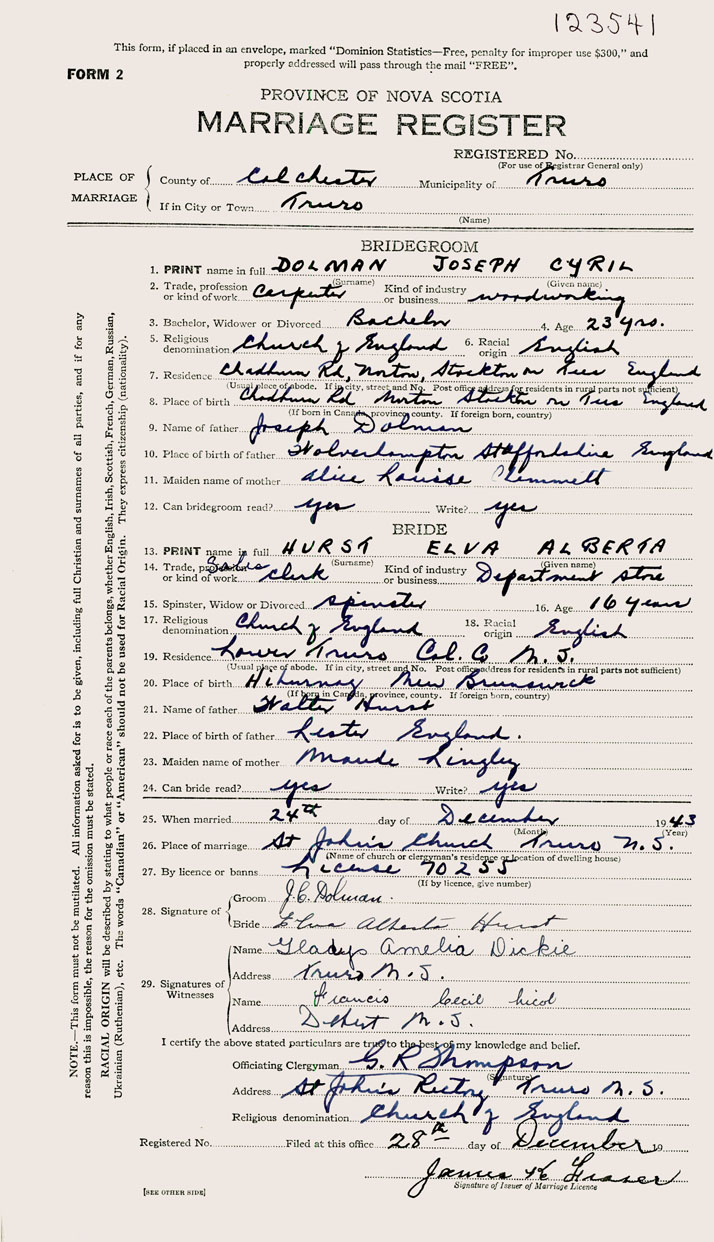 123541
This form, if placed in an envelope, marked "Dominion Statistics—Free, penalty for improper use $300," and
properly addressed will pass through the mail "FREE".
FORM 2
PROVINCE OF NOVA SCOTIA
MARRIAGE REGISTER
REGISTERED No.
(For use of Registrar General only)
PLACE OF MARRIAGE
County of Colchester Municipality of Truro
If in City or Town Truro
(Name)
BRIDEGROOM
1. PRINT name in full DOLMAN JOSEPH CYRIL
(Surname) (Given name)
2. Trade, profession or kind of work Carpenter Kind of industry or business woodworking
3. Bachelor, Widower or Divorced Bachelor 4. Age 23 yrs.
5. Religious denomination Church of England 6. Racial origin English
7. Residence Rd, Norton, Stockton on Tees England
(Usual place of abode. If in city, street and No. Post office address for residents in rural parts not sufficient)
8. Place of birth Rd Norton Stockton on Tees England
(If born in Canada, province, county. If foreign born, country)
9. Name of father Joseph Dolman
10. Place of birth of father Wolverhampton Staffordshire England
11. Maiden name of mother Alice Louise Clemmett
12. Can bridegroom read? yes Write? yes
BRIDE
13. PRINT name in full HURST ELVA ALBERTA
(Surname) (Given name)
14. Trade, profession or kind of work Sales clerk Kind of industry or business Department store
15. Spinster, Widow or Divorced spinster 16. Age 16 years
17. Religious denomination Church of England 18. Racial origin English
19. Residence Lower Truro Col. C. N.S.
(Usual place of abode. If in city, street and No. Post office address for residents in rural parts not sufficient)
20. Place of birth New Brunswick
(If born in Canada, province, county. If foreign born, country)
21. Name of father Walter Hurst
22. Place of birth of father Lester England.
23. Maiden name of mother Maude Lingley
24. Can bride read? yes Write? yes
25. When married 24th day of December 1943
(Month) (Year)
26. Place of marriage St John's Church Truro N.S.
(Name of church or clergyman's residence or location of dwelling house)
27. By licence or banns License 70255
(If by licence, give number)
28. Signature of
Groom J.C. Dolman.
Bride Elva Alberta Hurst
29. Signatures of Witnesses
Name Gladys Amelia Dickie
Address Truro N.S.
Name Francis Cecil Nicol
Address Debert N.S.
I certify the above stated particulars are true to the best of my knowledge and belief.
Officiating Clergyman G. R Thompson
(Signature)
Address St John's Rectory Truro N.S.
Religious denomination Church of England
Registered No. Filed at this office 28th day of December 19
James H Fraser
Signature of Issuer of Marriage Licence
[SEE OTHER SIDE]
NOTE.—This form must not be mutilated. All information asked for is to be given, including full Christian and surnames of all parties, and if for any
reason this is impossible, the reason for the omission must be stated.
RACIAL ORIGIN will be described by stating to what people or race each of the parents belongs, whether English, Irish, Scottish, French, German, Russian,
Ukrainian (Ruthenian), etc. The words "Canadian" or "American" should not be used for Racial Origin. They express citizenship (nationality).